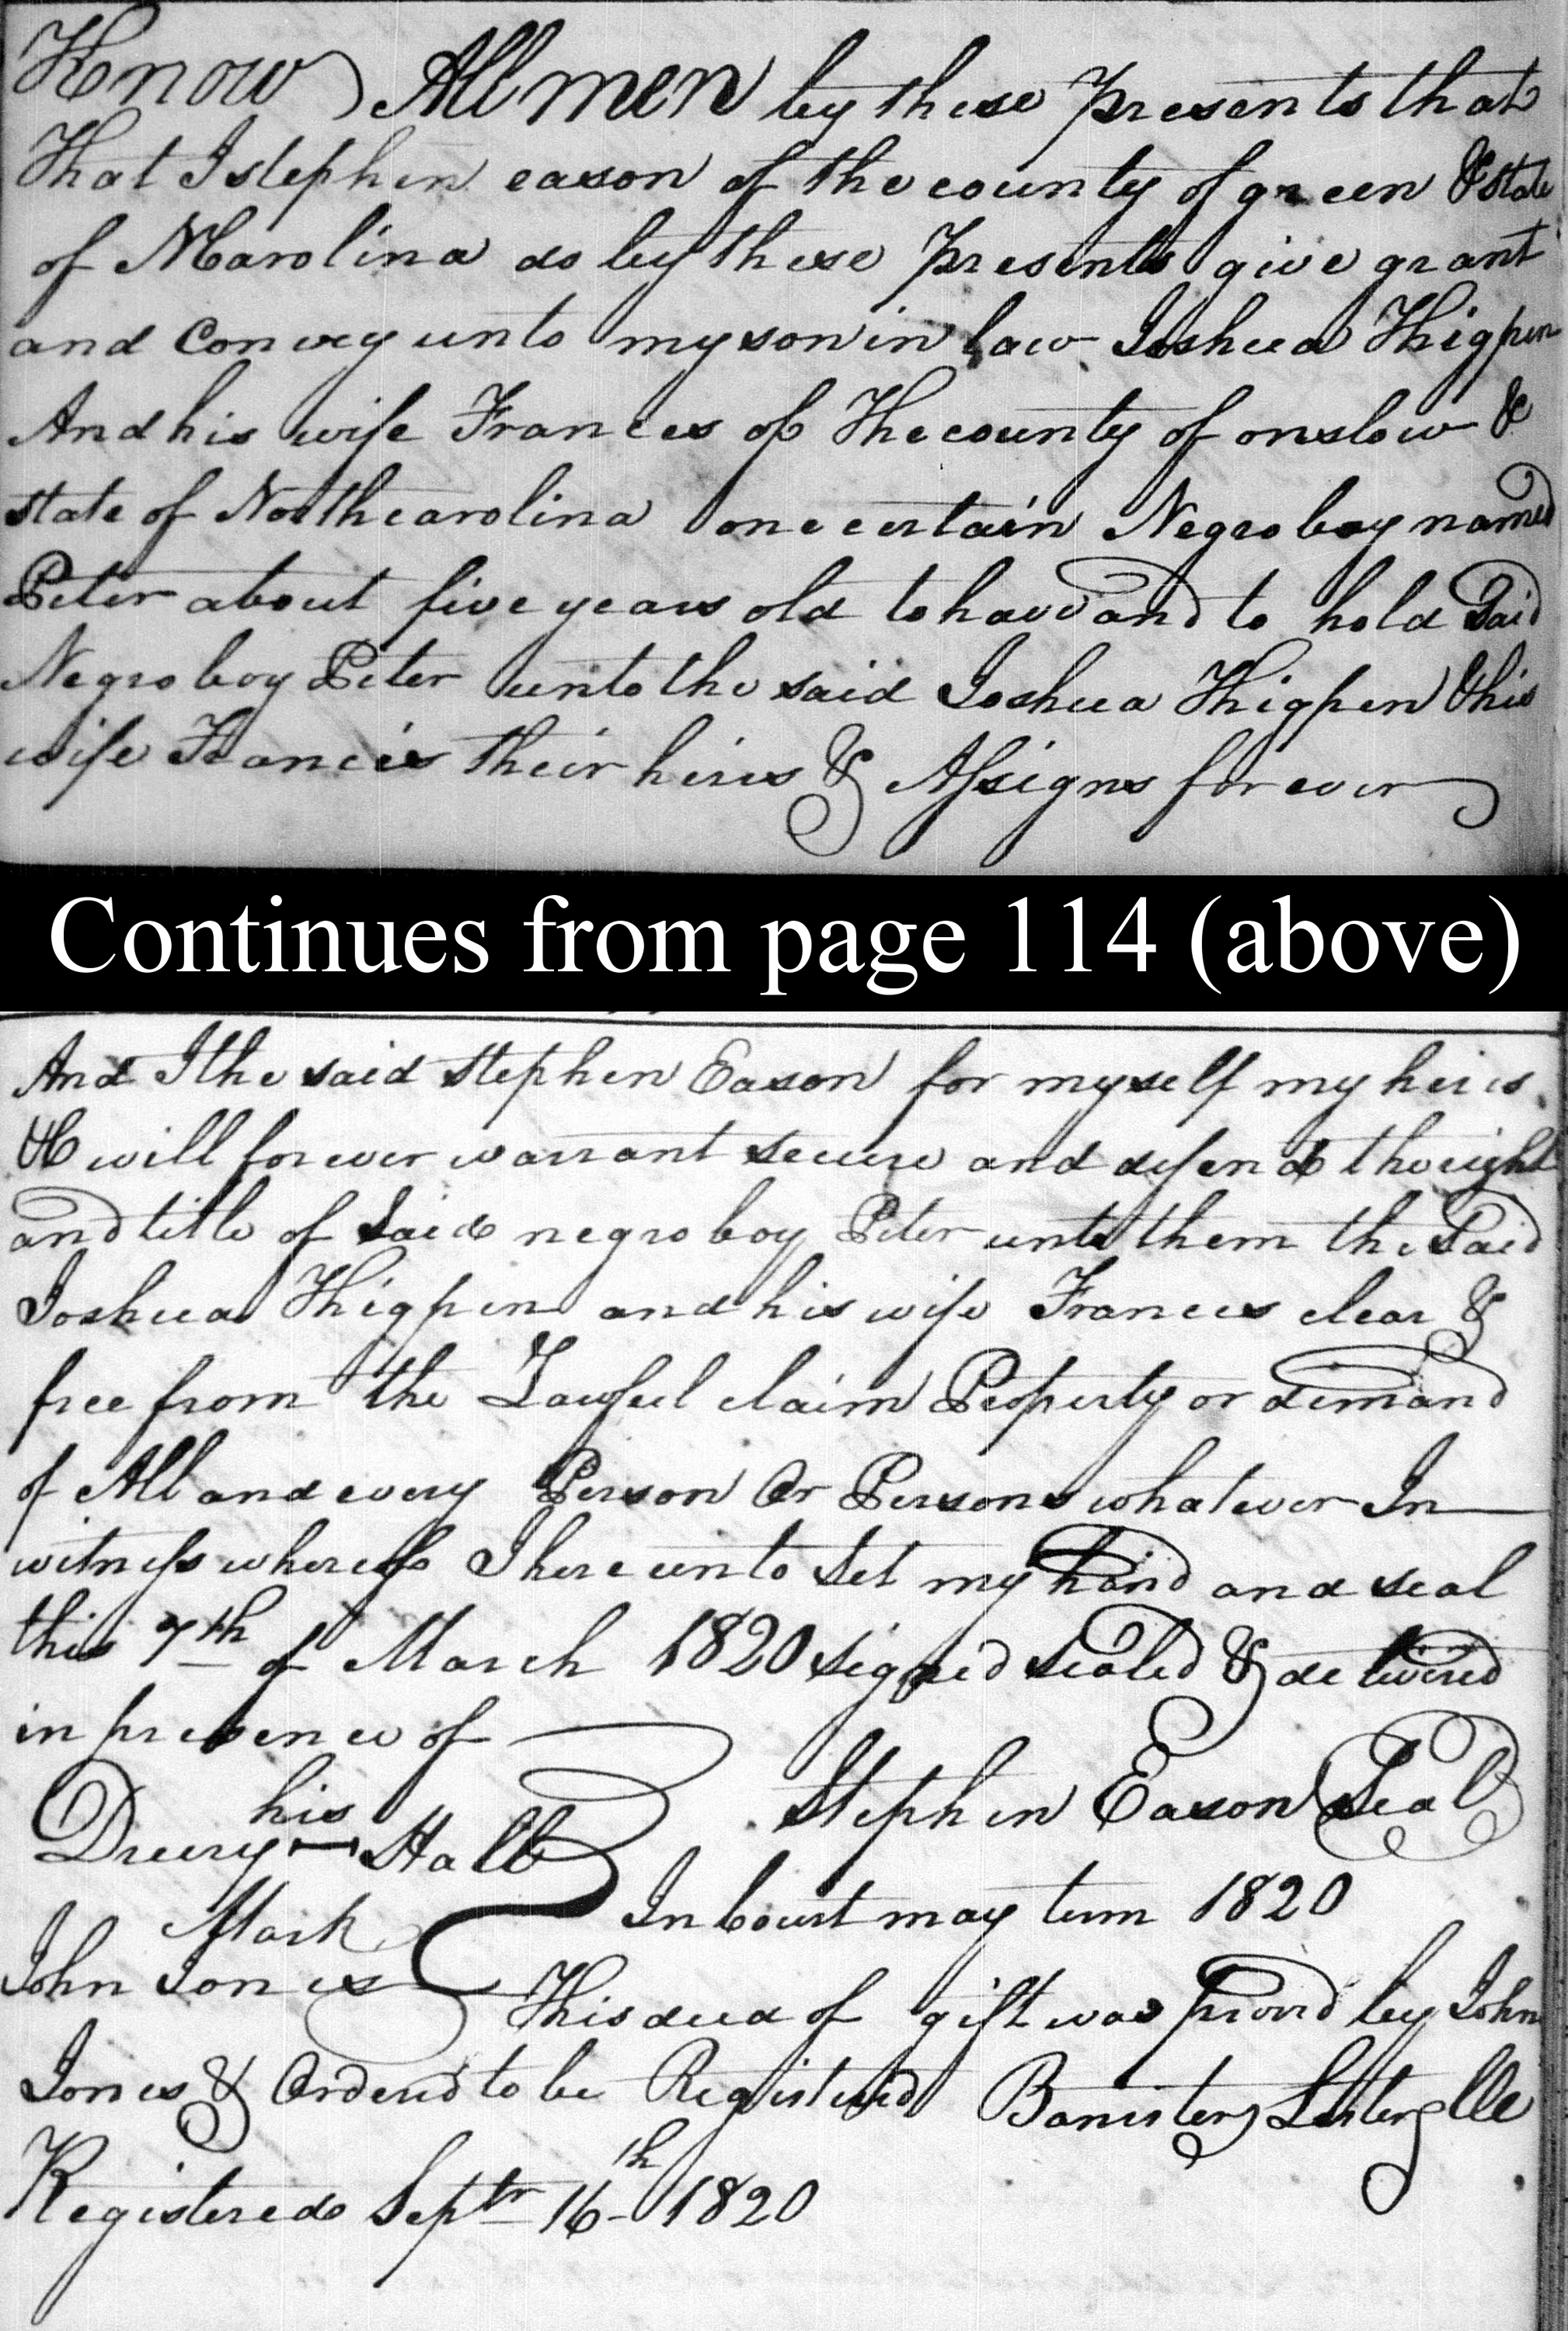 Know All men by these Presents that
That I stephen eason of the county of green & State
of NCarolina do by these Presents give grant
and Convey unto my son in law Joshua Thigpen
And his wife Frances of The county of onslow &
state of North carolina one certain Negro boy named
Peter about five years old to have and to hold Said
Negro boy Peter unto the said Joshua Thigpen & his
wife Francis their hires & Assigns for ever
Continues from page 114 (above)
And I the said stephen Eason for myself my heirs
&C will forever warrant secure and defend the right
and title of Said negro boy Peter unto them the Said
Joshua Thigpen and his wife Frances clear &
free from the Lawful claim Property or demand
of All and every Person Or Persons whatever In
witness whereof I here unto Set my hand and seal
this 7th of March 1820 signed sealed & delivered
in presence of
Stephen Eason Seal
his
Drury Hall
Mark
In Court may term 1820
John Jones
This deed of gift was provd by John
Jones & Ordered to be Registered Banister Lester Clk
Registered Septr 16th 1820